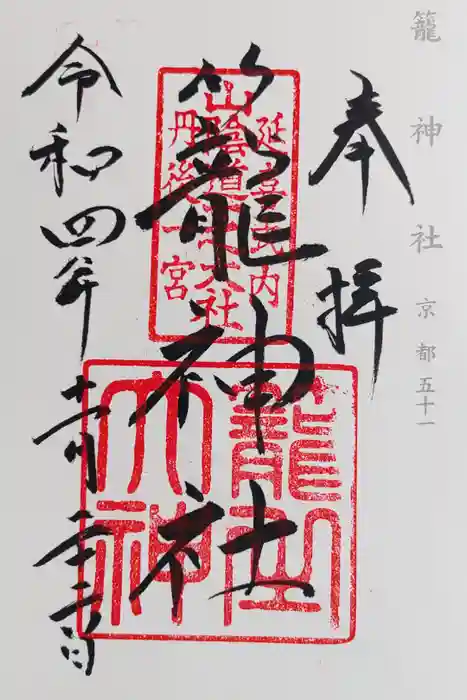 籠神社 京都五十一
奉拝
延喜式内
山陰道一之大社
丹後一宮
籠神社
籠之
大神
令和四年十一月二十三日